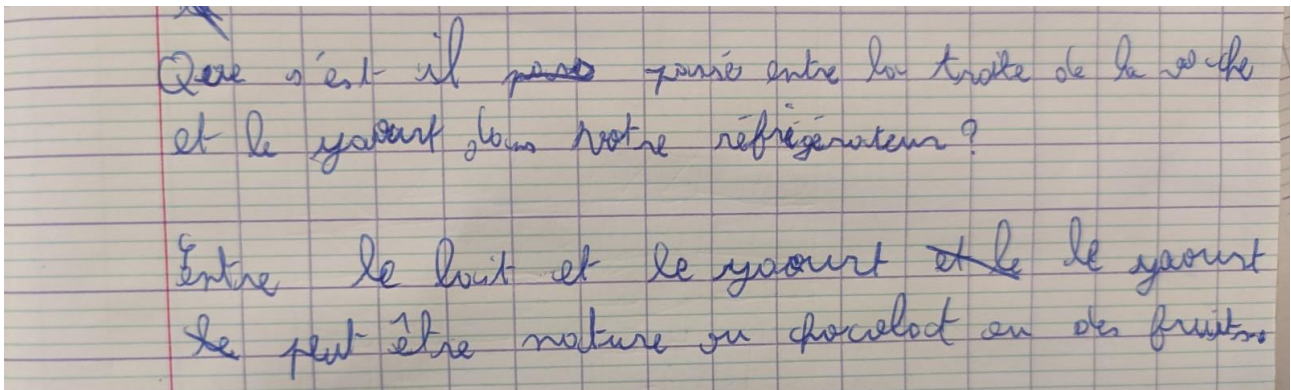 Que s'est il passé entre la traite de la vache
et le yaourt dans votre réfrigérateur?
Entre le lait et le yaourt et le le yaourt
le peut être nature ou chocolat ou des fruits